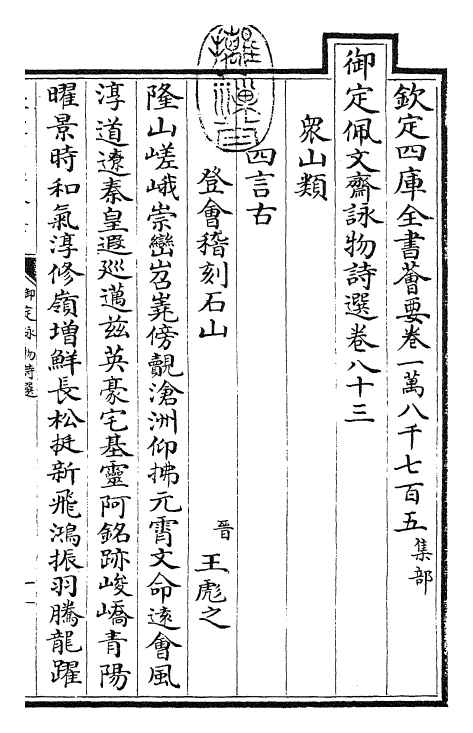 欽定四庫全書薈要卷一萬八千七百五集部
御定佩文齋詠物詩選卷八十三
衆山類
四言古
登會稽刻石山 晉 王彪之
隆山嵯峨崇巒岧嶤傍覿滄洲仰拂元霄文命遠會風
淳道遼秦皇遐巡邁茲英豪宅基靈阿銘跡峻嶠青陽
曜景時和氣淳修嶺增鮮長松挺新飛鴻振羽騰龍躍
御定詠物詩選